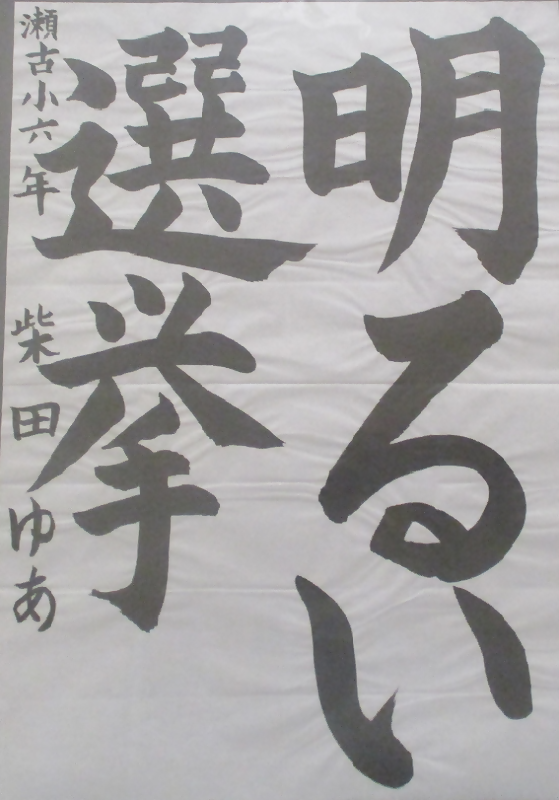 明るい
選挙
瀬古小六年 柴田ゆあ